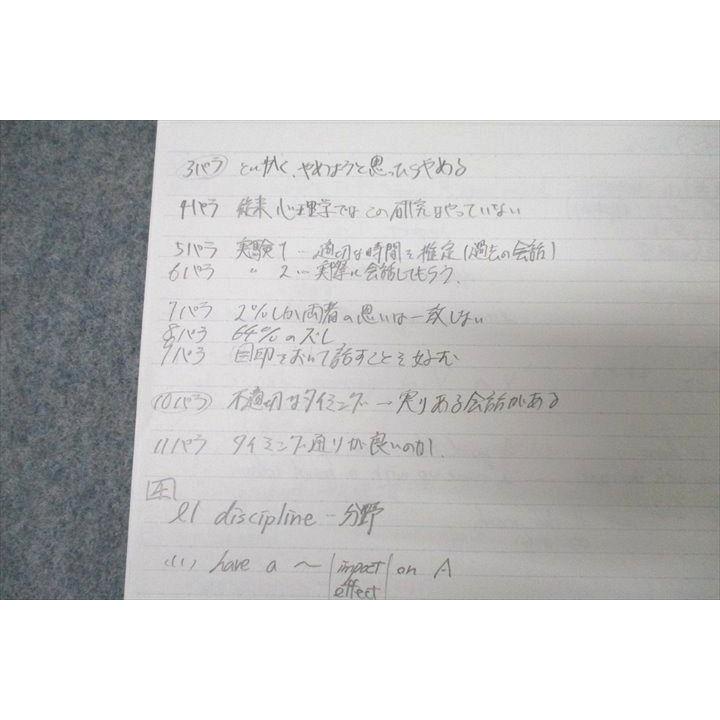 3パラ とにかく、やめようと思ったらやめる
4パラ 従来心理学ではこの研究はやっていない
5パラ 実験1…適切な時間を推定(過去の会話)
6パラ 〃 2…実際に会話してもらう.
7パラ 2%しか両者の思いは一致しない
8パラ 64%のズレ
9パラ 目印をおいて話すことを好む
(10パラ) 不適切なタイミング→実りある会話がある
11パラ タイミング通りが良いのか.
4
l1 discipline…分野
(11) have a ～ impact on A
effect